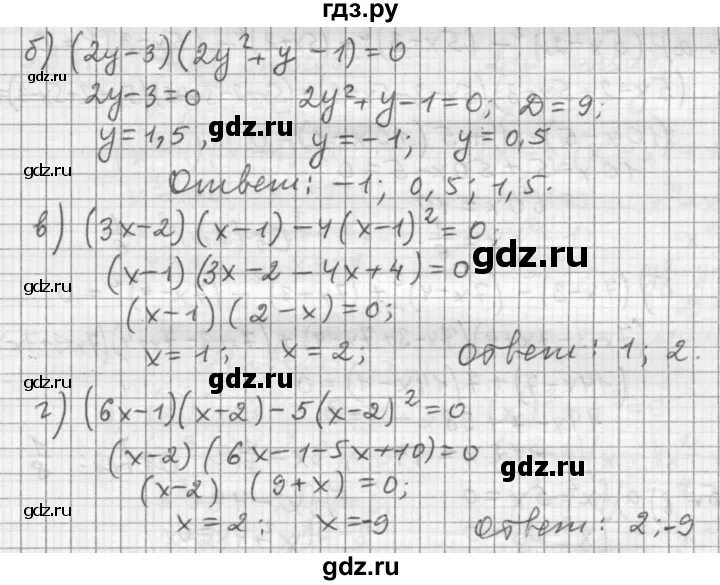 гдз.ру
б) (2y-3)(2y²+y-1)=0
gdz.ru
2y-3=0 2y²+y-1=0; D=9;
y=1,5, gdz.ru y=-1; y=0,5
gdz.ru
Ответ: -1; 0,5; 1,5.
в) (3x-2)(x-1)-4(x-1)²=0;
gdz.ru
(x-1)(3x-2-4x+4)=0
gdz.ru
(x-1)(2-x)=0;
x=1; x=2; ответ: 1; 2.
gdz.ru
gdz.ru
г) (6x-1)(x-2)-5(x-2)²=0
(x-2)(6x-1-5x+10)=0
gdz.ru
gdz.ru
(x-2) (9+x)=0;
x=2; x=-9 ответ: 2;-9
gdz.ru
gdz.ru
гдз.ру